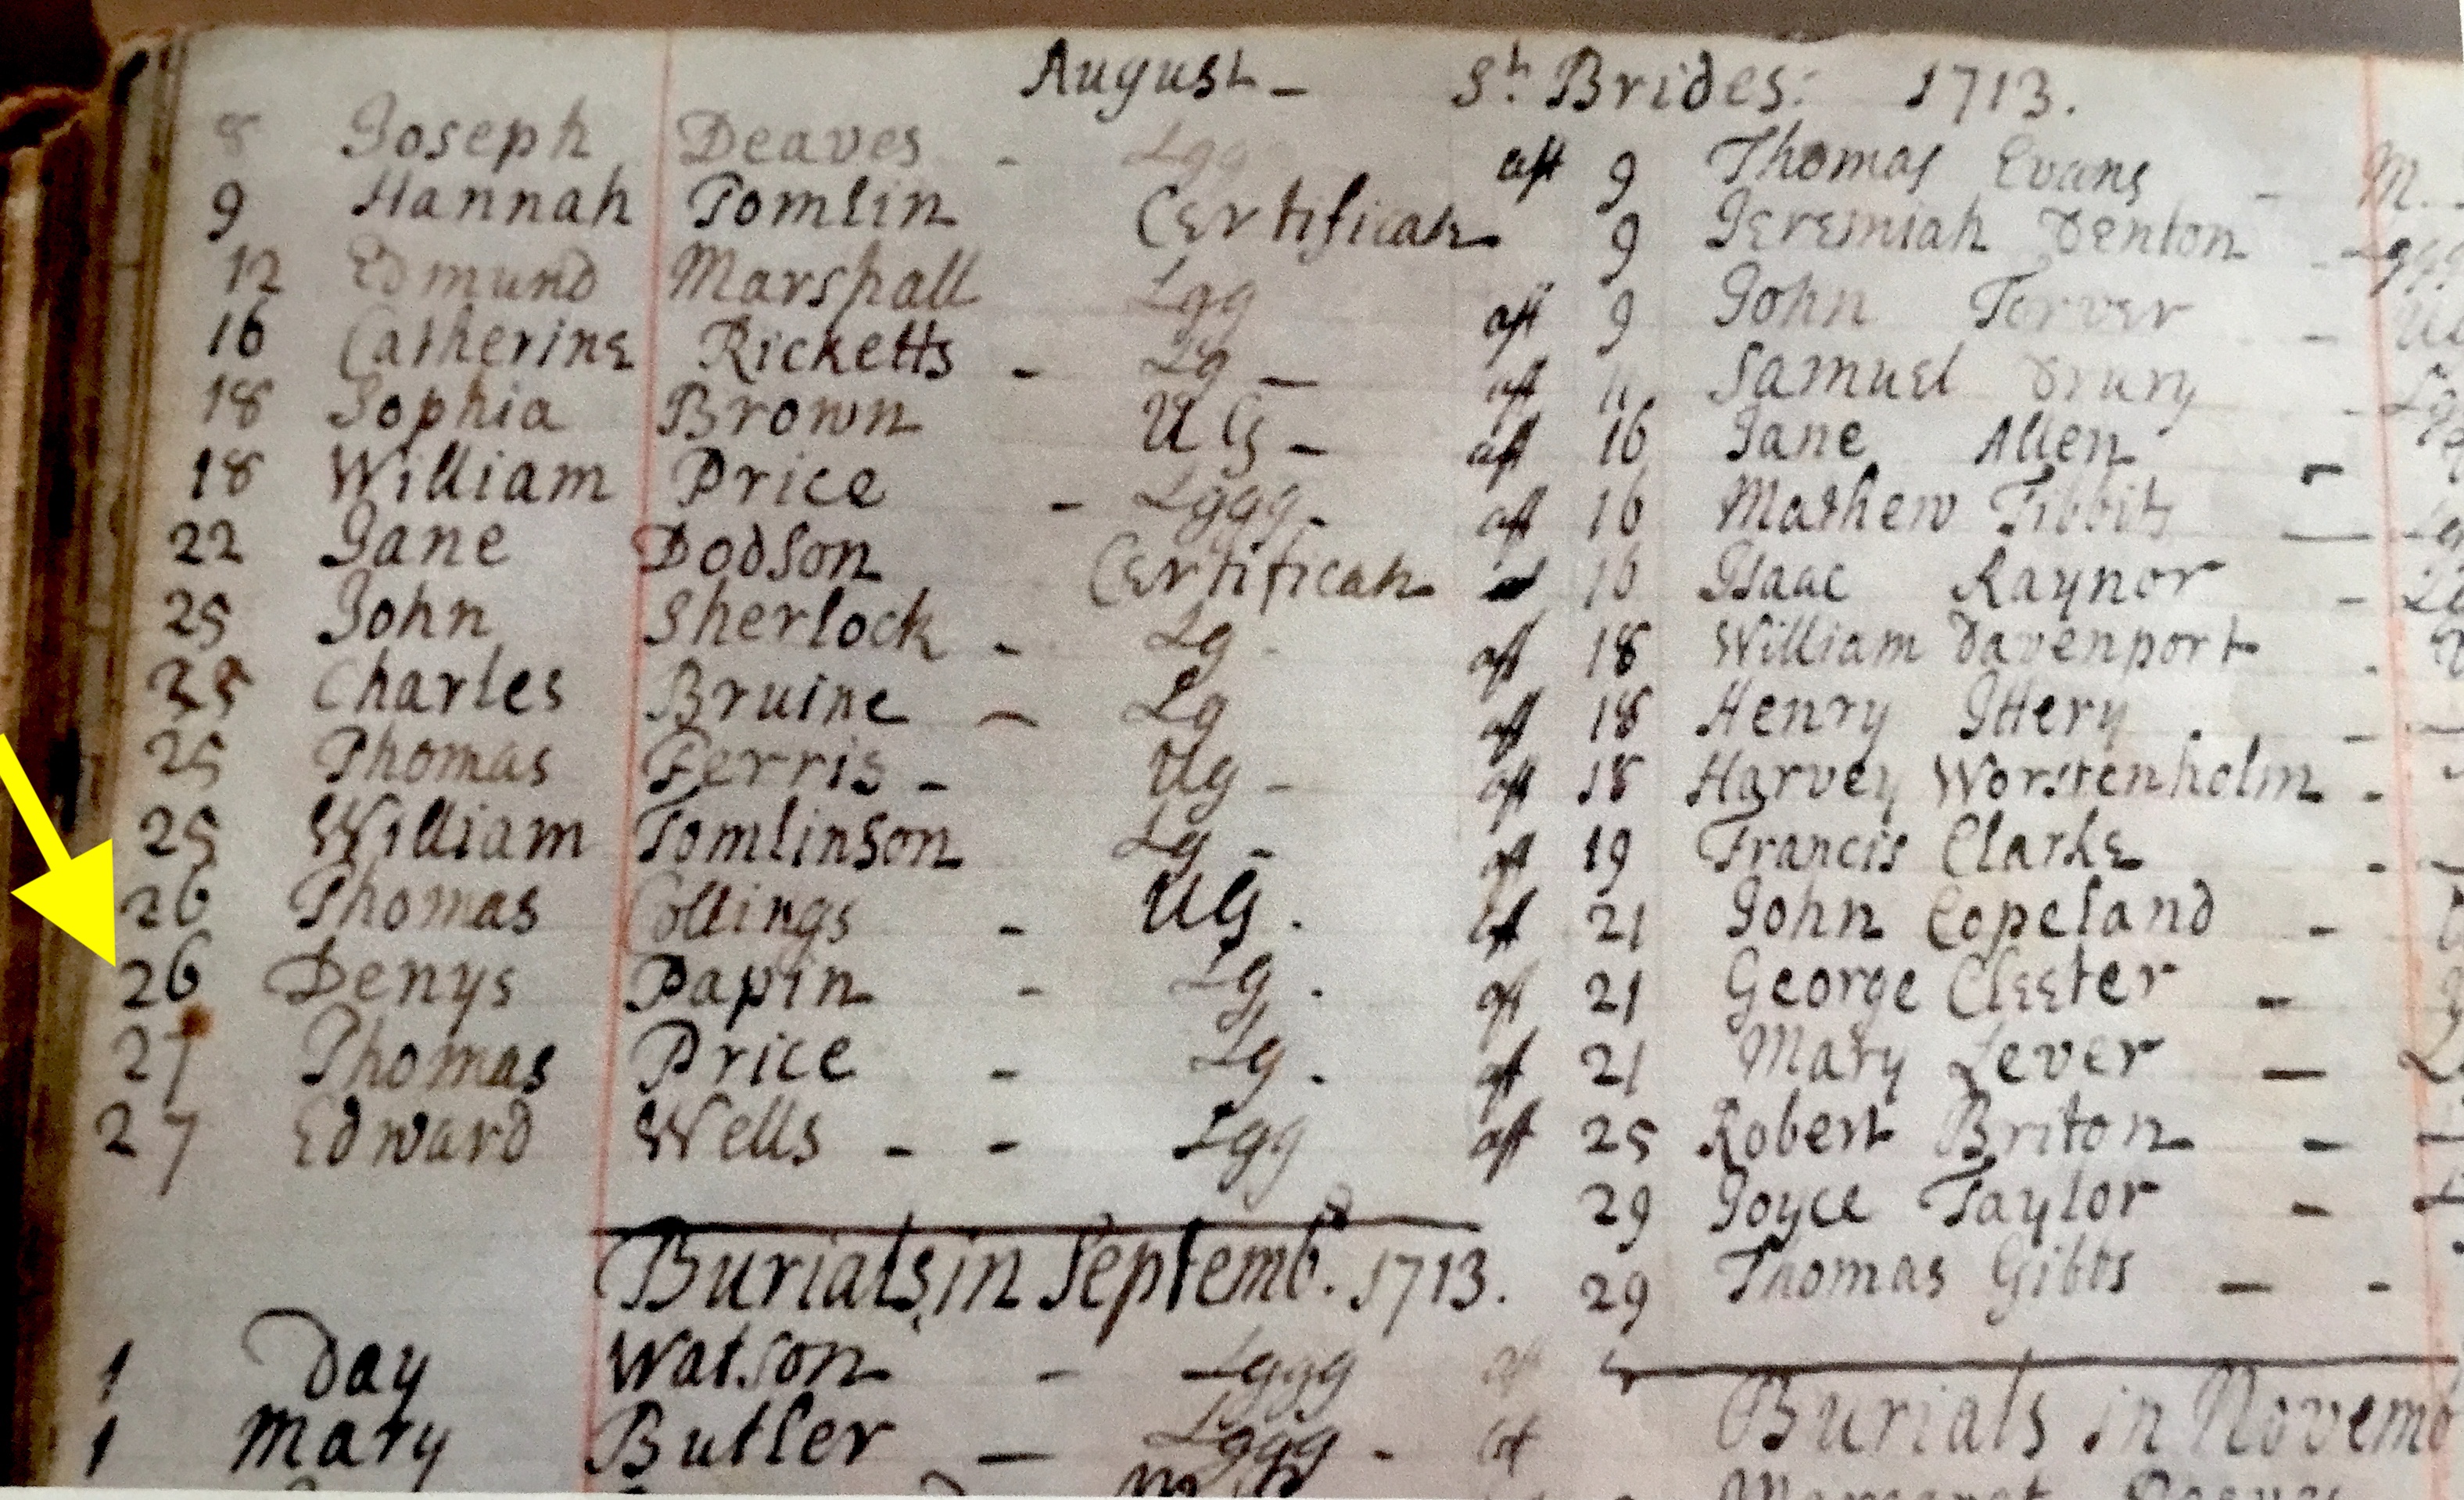 August - St. Brides: 1713.
8 Joseph Deaves - Lgg
9 Hannah Tomlin Certificate
12 Edmund Marshall Lgg
16 Catherine Ricketts - Lg -
18 Sophia Brown UG -
18 William Price - Lggg -
22 Jane Dodson Certificate
25 John Sherlock - Lg -
25 Charles Bruine - Lg
25 Thomas Ferris - Ug -
25 William Tomlinson Lg -
26 Thomas Collings - UG .
26 Denys Papin - Lg .
27 Thomas Price - Lg .
27 Edward Wells - - Lgg
Burials in Septemb. 1713.
1 Day Watson - Lggg
1 Mary Butler - Lggg -
aft 9 Thomas Evans - M.
9 Jeremiah Denton - Lggg
aft 9 John Ferver -
aft 11 Samuel Drury -
aft 16 Jane Allen -
aft 16 Mathew Tibbits -
16 Isaac Raynor -
aft 18 William Davenport -
aft 18 Henry Ittery -
aft 18 Harvey Worstenholm -
aft 19 Francis Clarke -
aft 21 John Copeland -
aft 21 George Cleeter -
aft 21 Mary Lever -
aft 25 Robert Briton -
29 Joyce Taylor -
29 Thomas Gibbs - -
Burials in Novemb